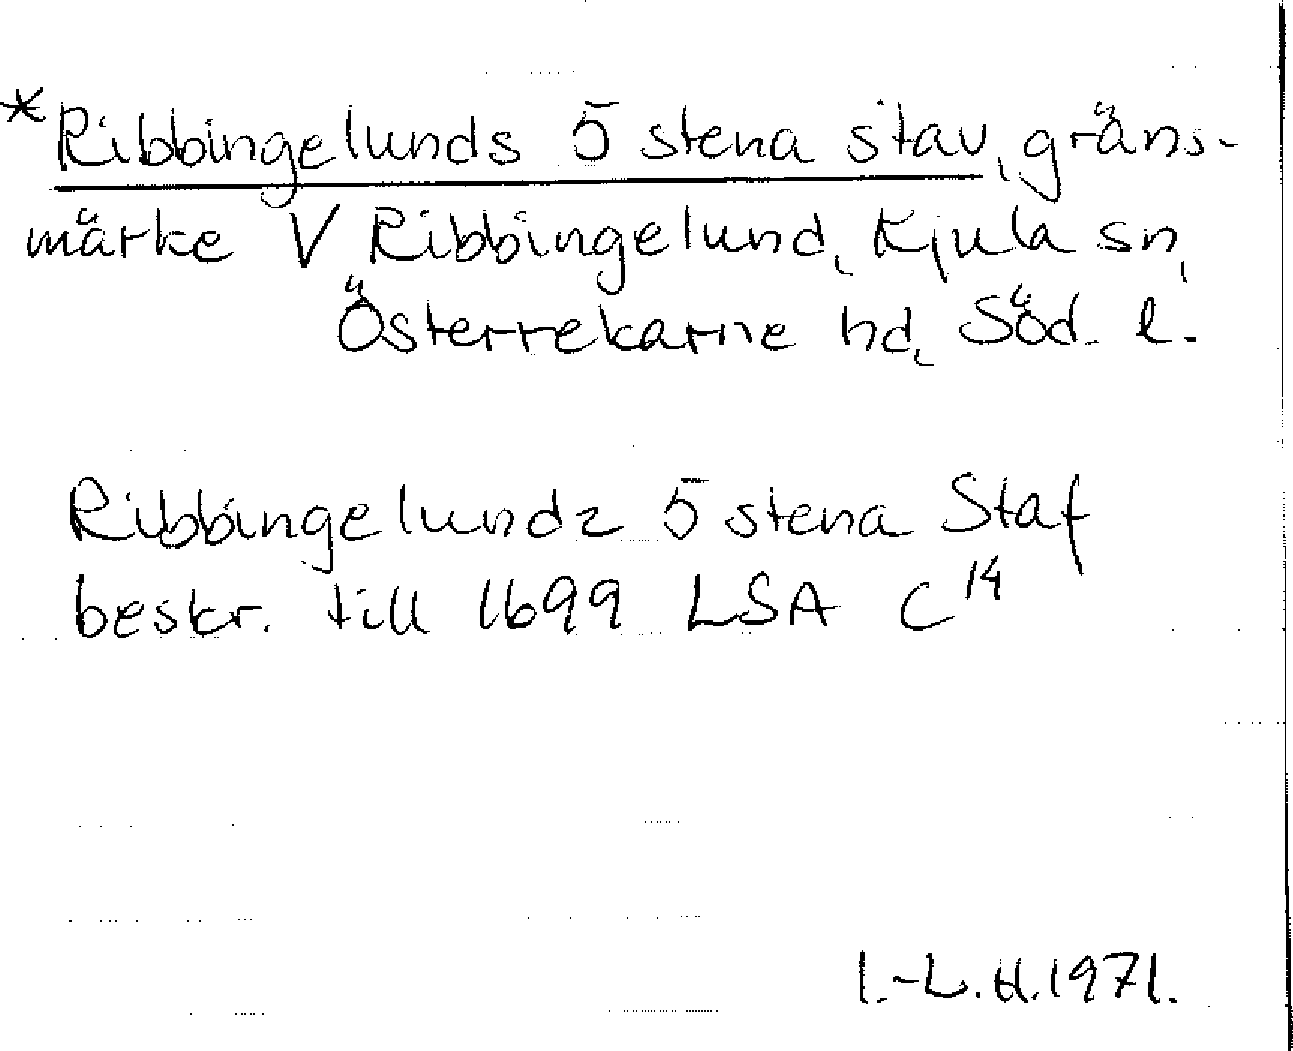 *Ribbingelunds 5 stena stav, gräns-
märke V Ribbingelund, Kjula sn,
Österrekarne hd, Söd. l.
Ribbingelundz 5 stena Staf
beskr. till 1699 LSA C¹⁴
I.-L. H. 1971.